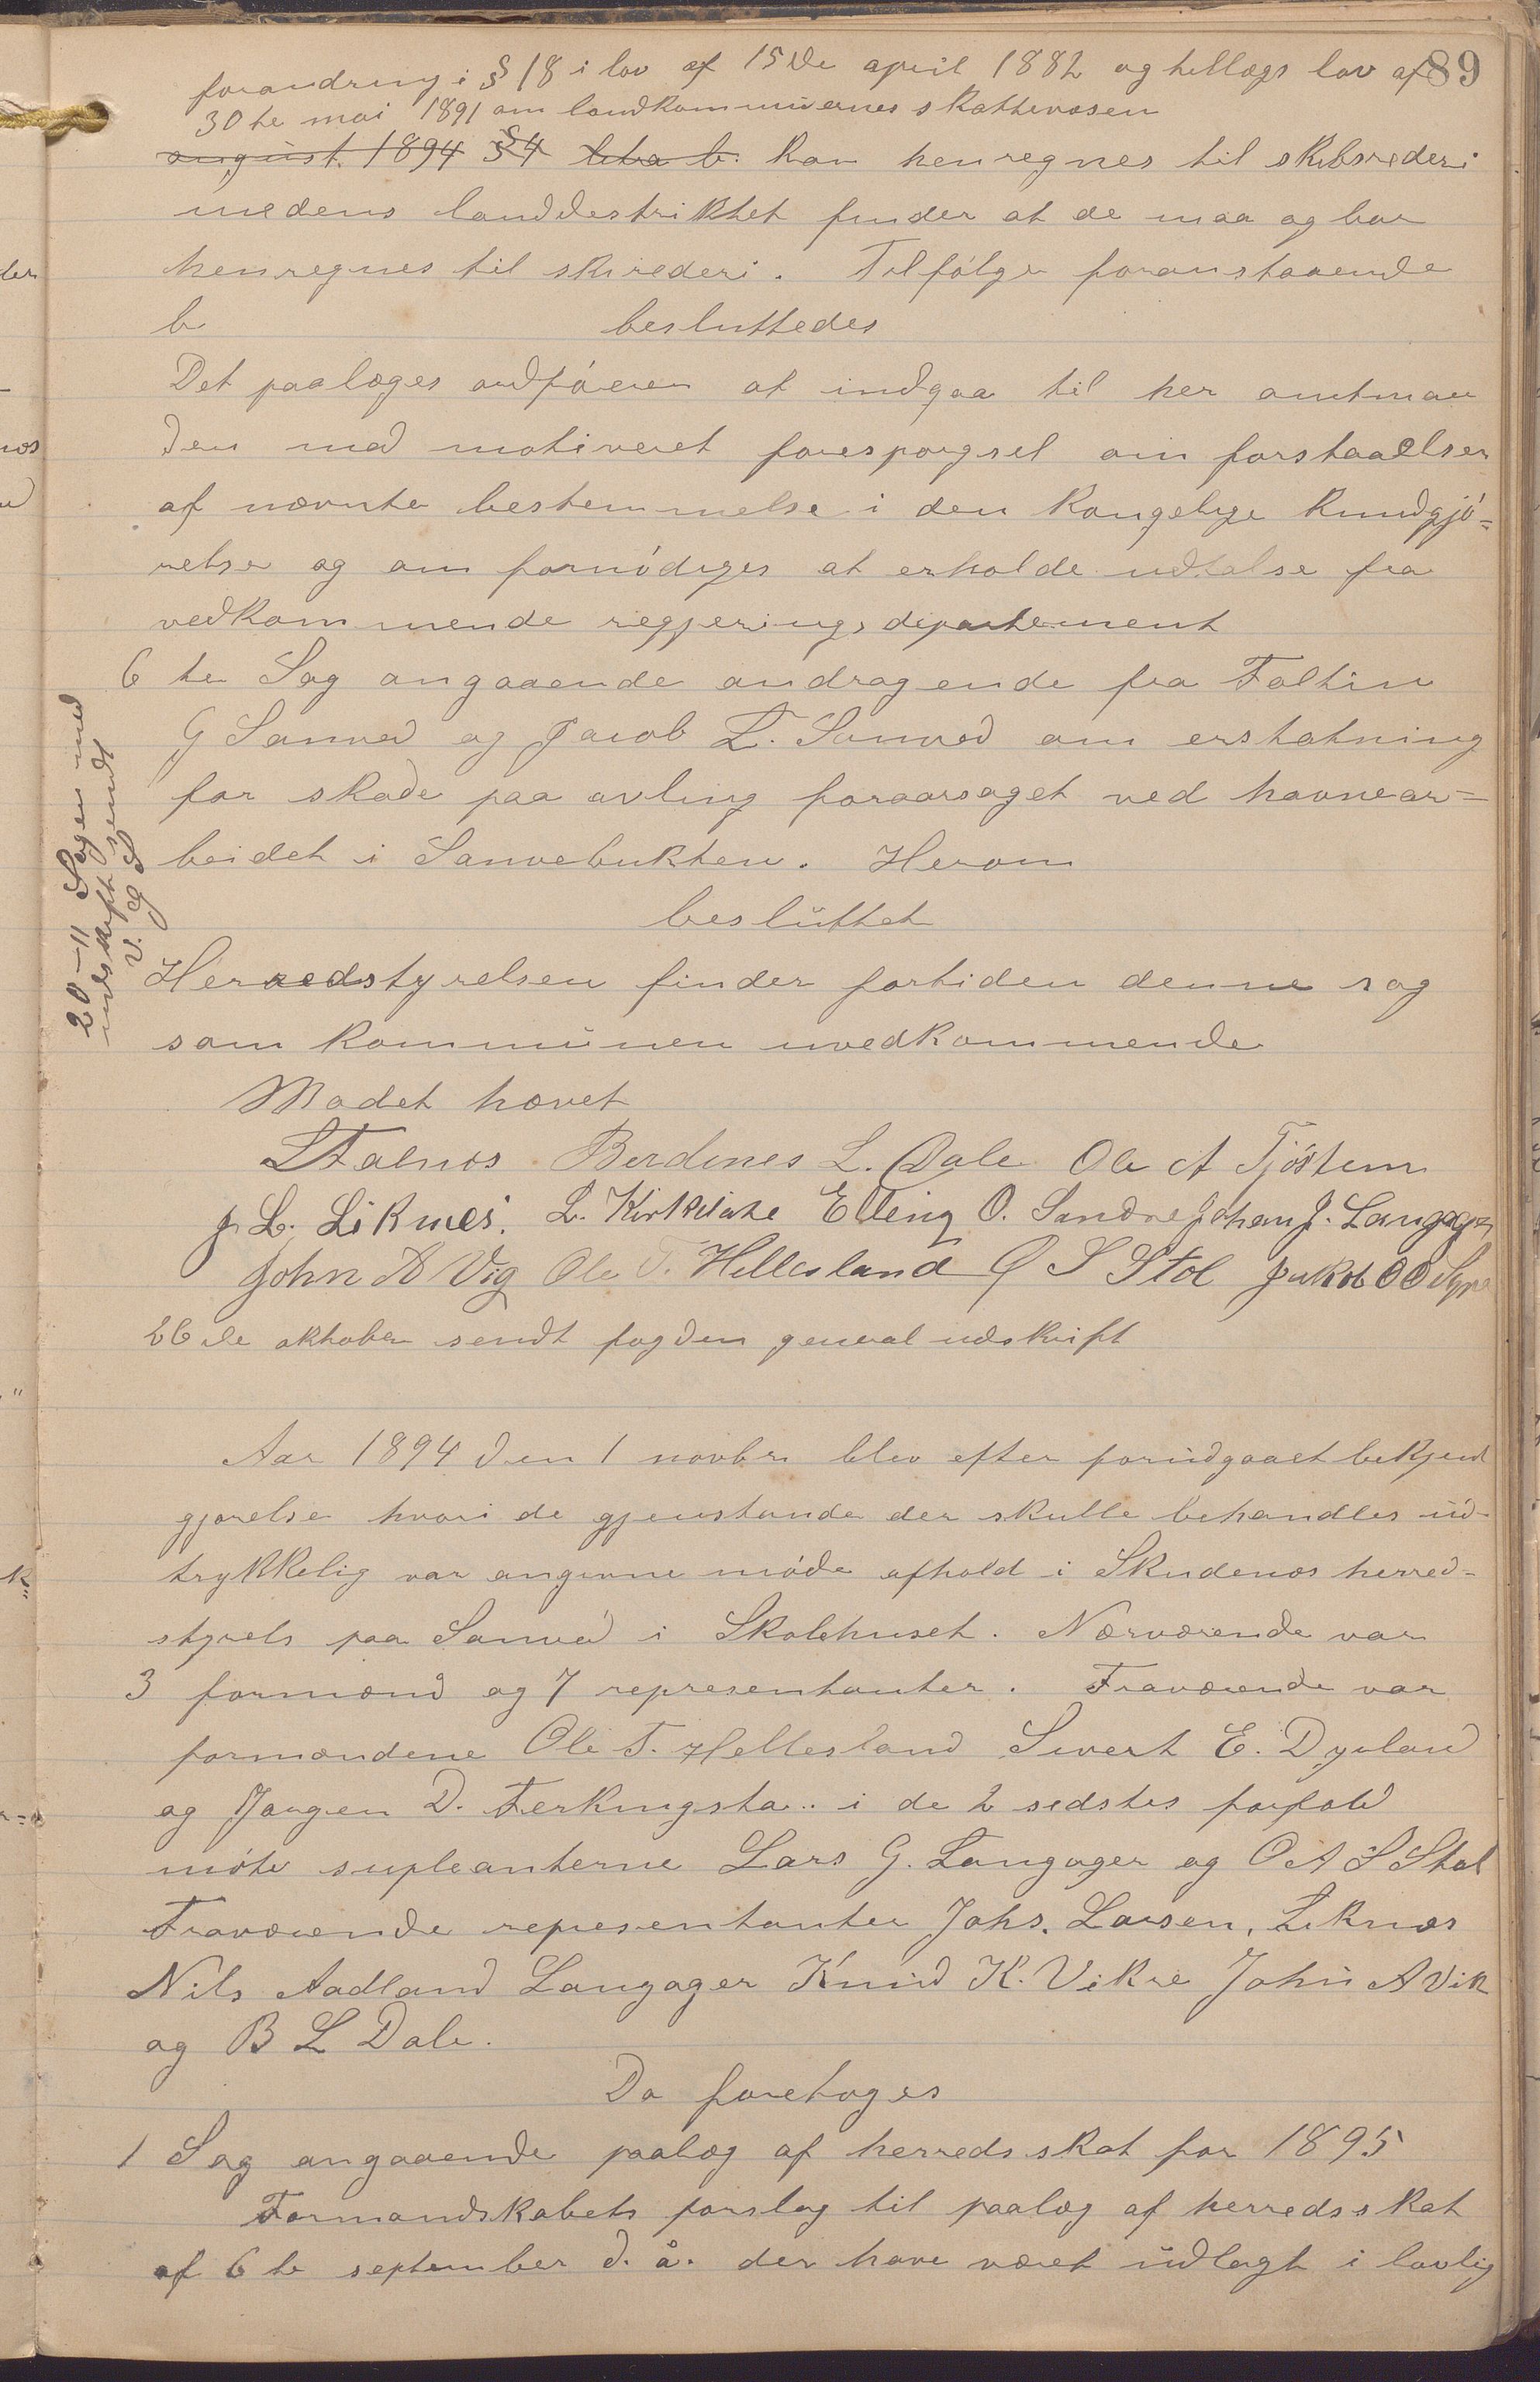 89
forandring i § 18 i lov af 15de april 1882 og tillægs lov af
30te mai 1891 om landkommunernes skattevæsen
august 1894 § 4 litra b. kan henregnes til skibsrederi
medens landdestriktet finder at de maa og bør
henregnes til skirederi. Tilfølge foranstaaende
b besluttedes
Det paalæges ordføreren at indgaa til her amtman
den med motiveret forespørgsel om forstaaelsen
af nævnte bestemmelse i den kongelige kundgjø-
relse og om fornødiges at erholde udtalse fra
vedkommende regjerings departement
6 te Sag angaaende andragende fra Faltin
G Sanved og Jacob T. Sanved om erstatning
for skade paa avling foraarsaget ved havnear-
beidet i Sanvebukten. Herom
besluttet
Herredstyrelsen finder fortiden denne sag
som kommunen uvedkommende
20-11 Sagen med
udskrift sendt
V. G S
Mødet hævet
S Falnes Berdines L. Dale Ole A Tjøstem
J L. Liknes. L. Kirkeleite Elling O. Sandve Johan J. Langåger
John A Vig Ole T. Hellesland O S Stol Jakob O O Syre
26de oktober sendt fogden general udskrift
Aar 1894 den 1 novbr blev efter forudgaaet bekjend
gjørelse hvori de gjenstande der skulle behandles ud-
trykkelig var angivne møde afhold i Skudenes herred-
styrels paa Sanved i Skolehuset. Nærværende var
3 formænd og 7 representanter. Fraværende var
formændene Ole T. Hellesland Sivert E. Dyrland
og Jørgen D. Ferkingsta.. i de 2 sidstes forfald
møte supleanterne Lars G. Langager og O A S Stol
Fraværende representanter Johs. Larsen, Liknes
Nils Aadland Langager Knud K. Vikre John A Vik
og B L Dale.
Da foretoges
1 Sag angaaende paalæg af herredsskat for 1895
Formandskabets forslag til paalæg af herredsskat
af 6te september d. å. der have været udlagt i lovlig